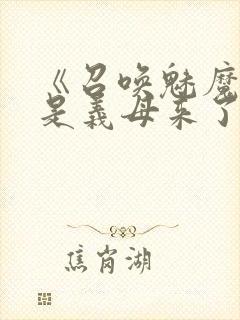 《召唤魅魔
是义母来了
焦岗湖